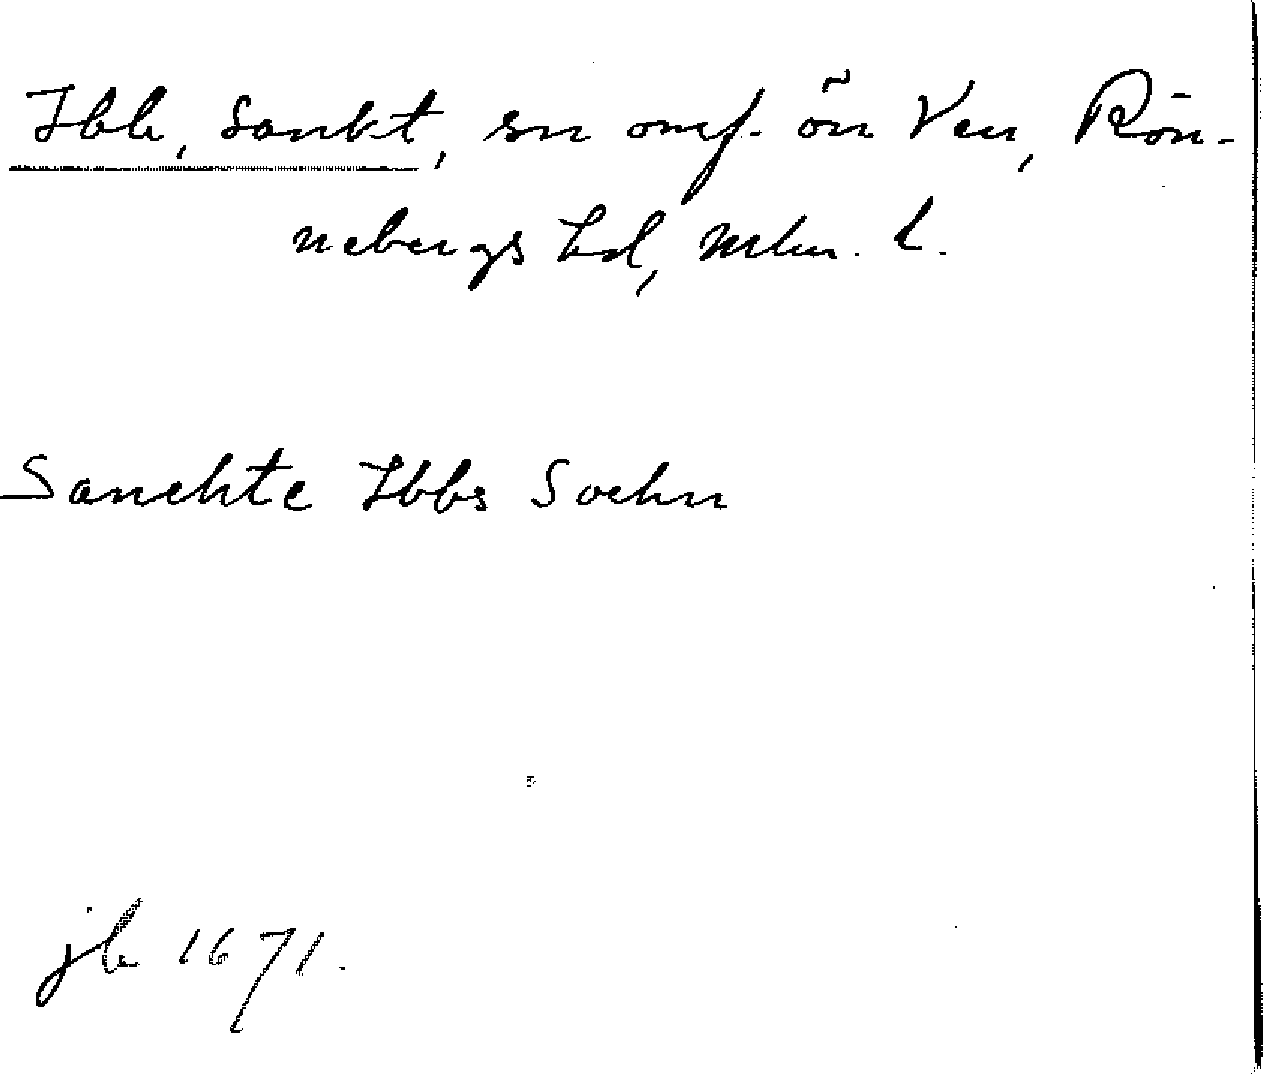 Ibb, Sankt, sn omf. ön Ven, Rön-
nebergs hd, Mlm. l.
Sanchte Ibbs Sochn
jb 1671.